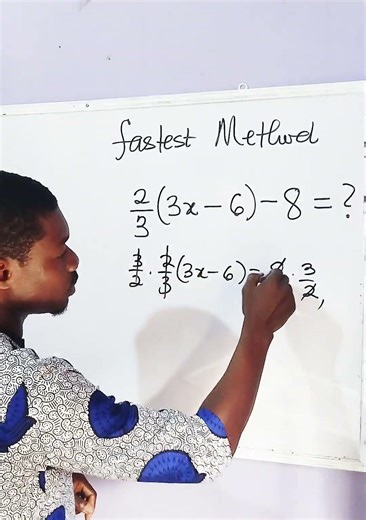 fastest Method
2/3(3x-6)-8=?
3/2 · 2/3(3x-6)=8 · 3/2,